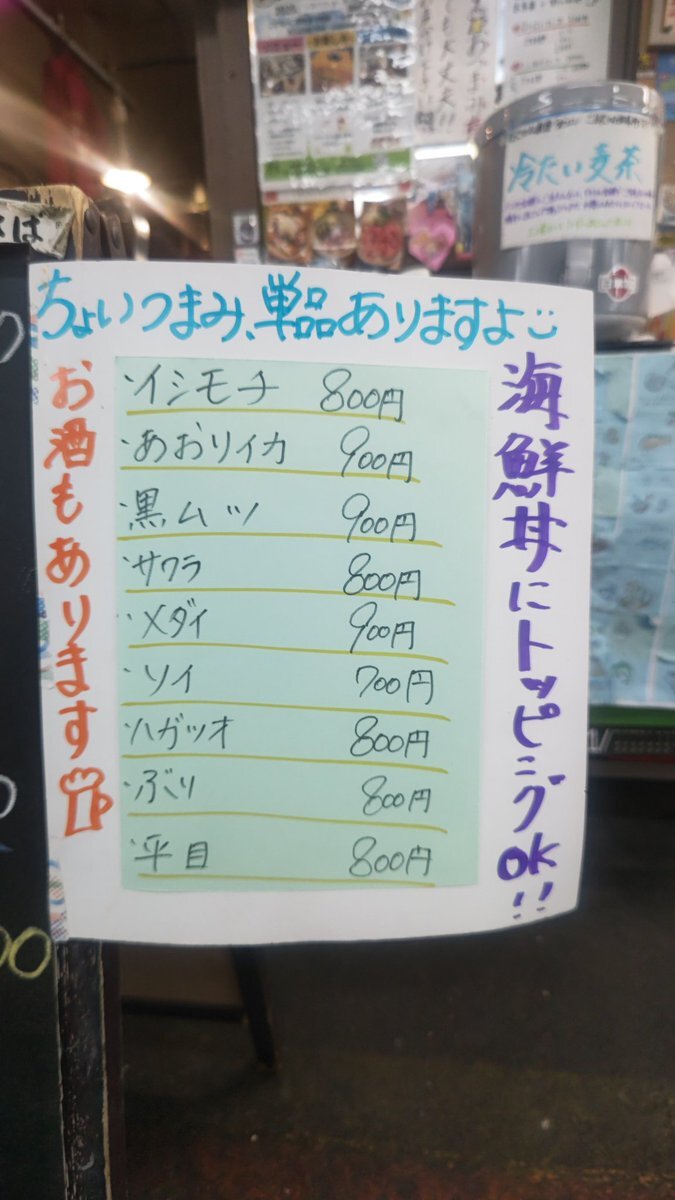 ちょいつまみ、単品ありますよ
海鮮丼にトッピングOK!!
お酒もあります
・イシモチ 800円
・あおりイカ 900円
・黒ムツ 900円
・サワラ 800円
・メダイ 900円
・ソイ 700円
・ハガツオ 800円
・ぶり 800円
・平目 800円
冷たい麦茶